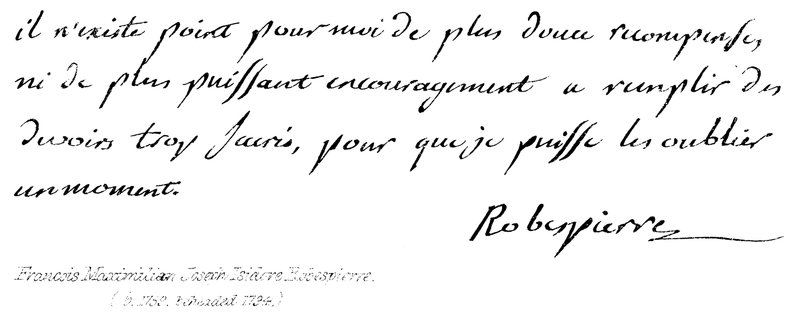 il n'existe point pour moi de plus douce recompense,
ni de plus puissant encouragement a remplir des
devoirs trop sacrés, pour que je puisse les oublier
un moment.
Robespierre
Francois Maximilian Joseph Isidore Robespierre.
(b. 1759. beheaded 1794.)